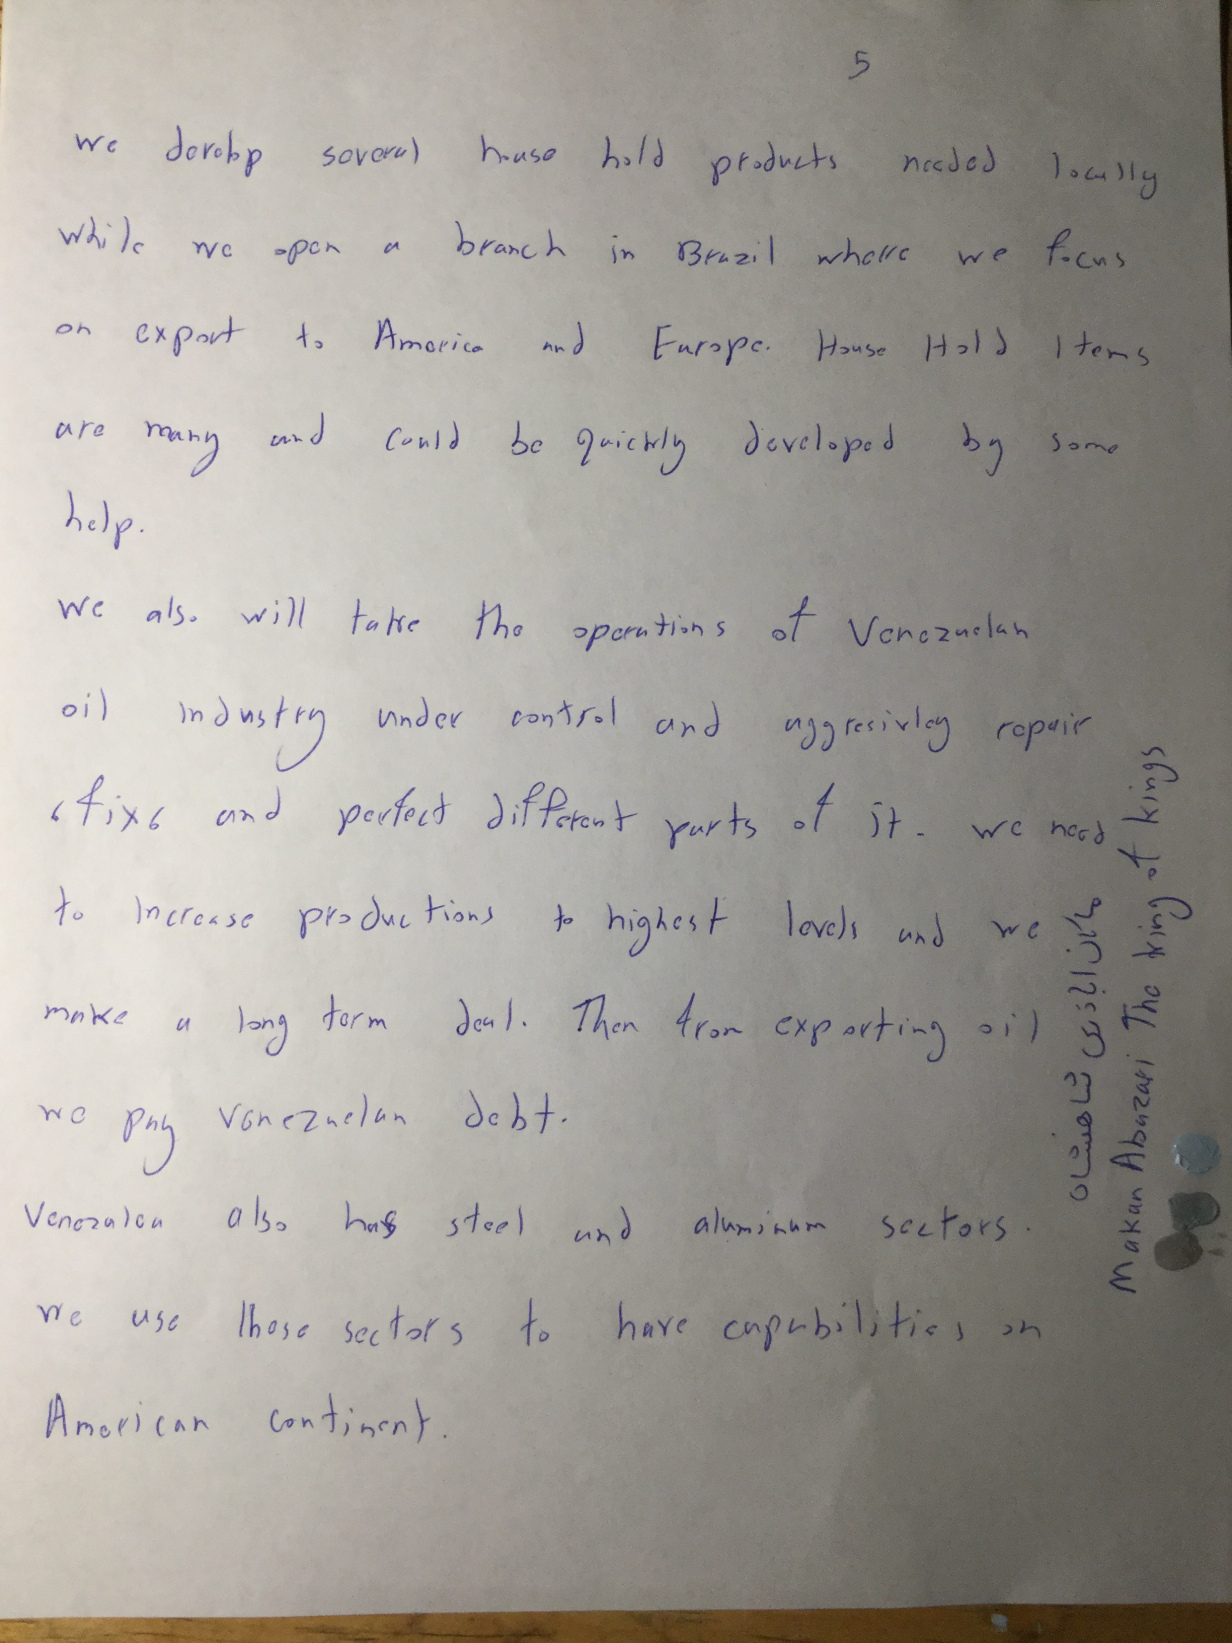 5
we develop several house hold products needed locally
while we open a branch in Brazil where we focus
on export to America and Europe. House Hold Items
are many and could be quickly developed by some
help.
we also will take the operations of Venezuelan
oil industry under control and aggresivley repair
، fix، and perfect different parts of it. we need
to increase productions to highest levels and we
make a long term deal. Then from exporting oil
we pay Venezuelan debt.
Venezulea also has steel and aluminum sectors.
we use those sectors to have capabilities on
American continent.
ماکان اباذری شاهنشاه
Makan Abazari The king of kings